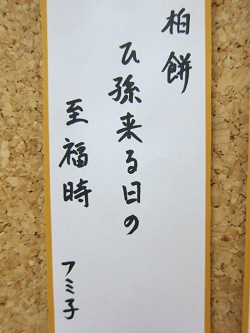 柏餅
ひ孫来る日の
至福時
フミ子